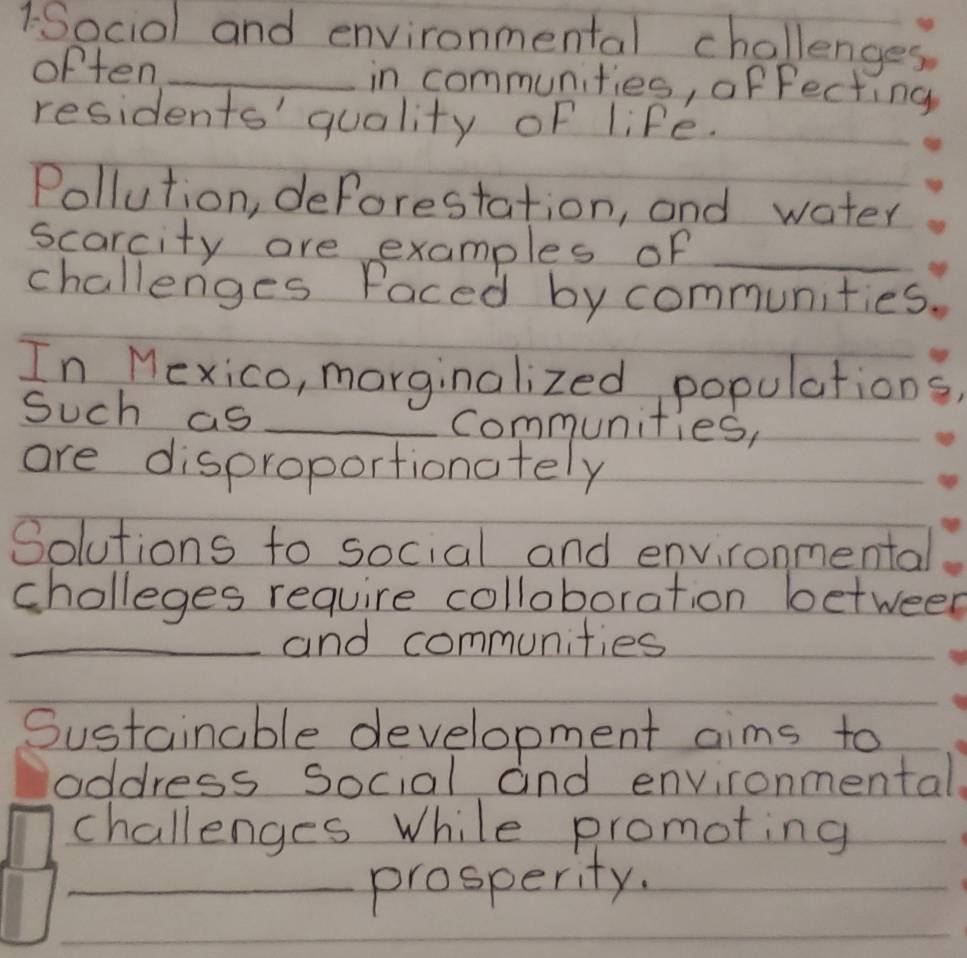 1. Social and environmental challenges
often ________ in communities, affecting
residents' quality of life.
Pollution, deforestation, and water
scarcity are examples of ________
challenges faced by communities.
In Mexico, marginalized populations,
such as ________ communities,
are disproportionately
Solutions to social and environmental
challeges require collaboration between
________ and communities
Sustainable development aims to
address social and environmental
challenges while promoting
________ prosperity.